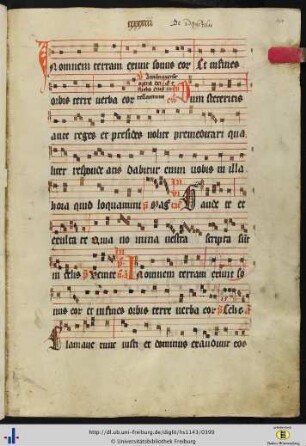 De Apostolis
In omnem terram exiuit sonus eor Et in fines
orbis terre uerba eor Dum steteritis
ante reges et presides nolite premeditari qua
liter respondeatis dabitur enim uobis in illa
hora quid loquamini Gaude te et
exulta te Quia no mina uestra scripta sūt
in celis In omnem terram exiuit so
nus eor et in fines orbis terre uerba eor
Clamaue runt iusti et dominus exaudiuit eos
http://dl.ub.uni-freiburg.de/diglit/hs1143/0399
© Universitätsbibliothek Freiburg